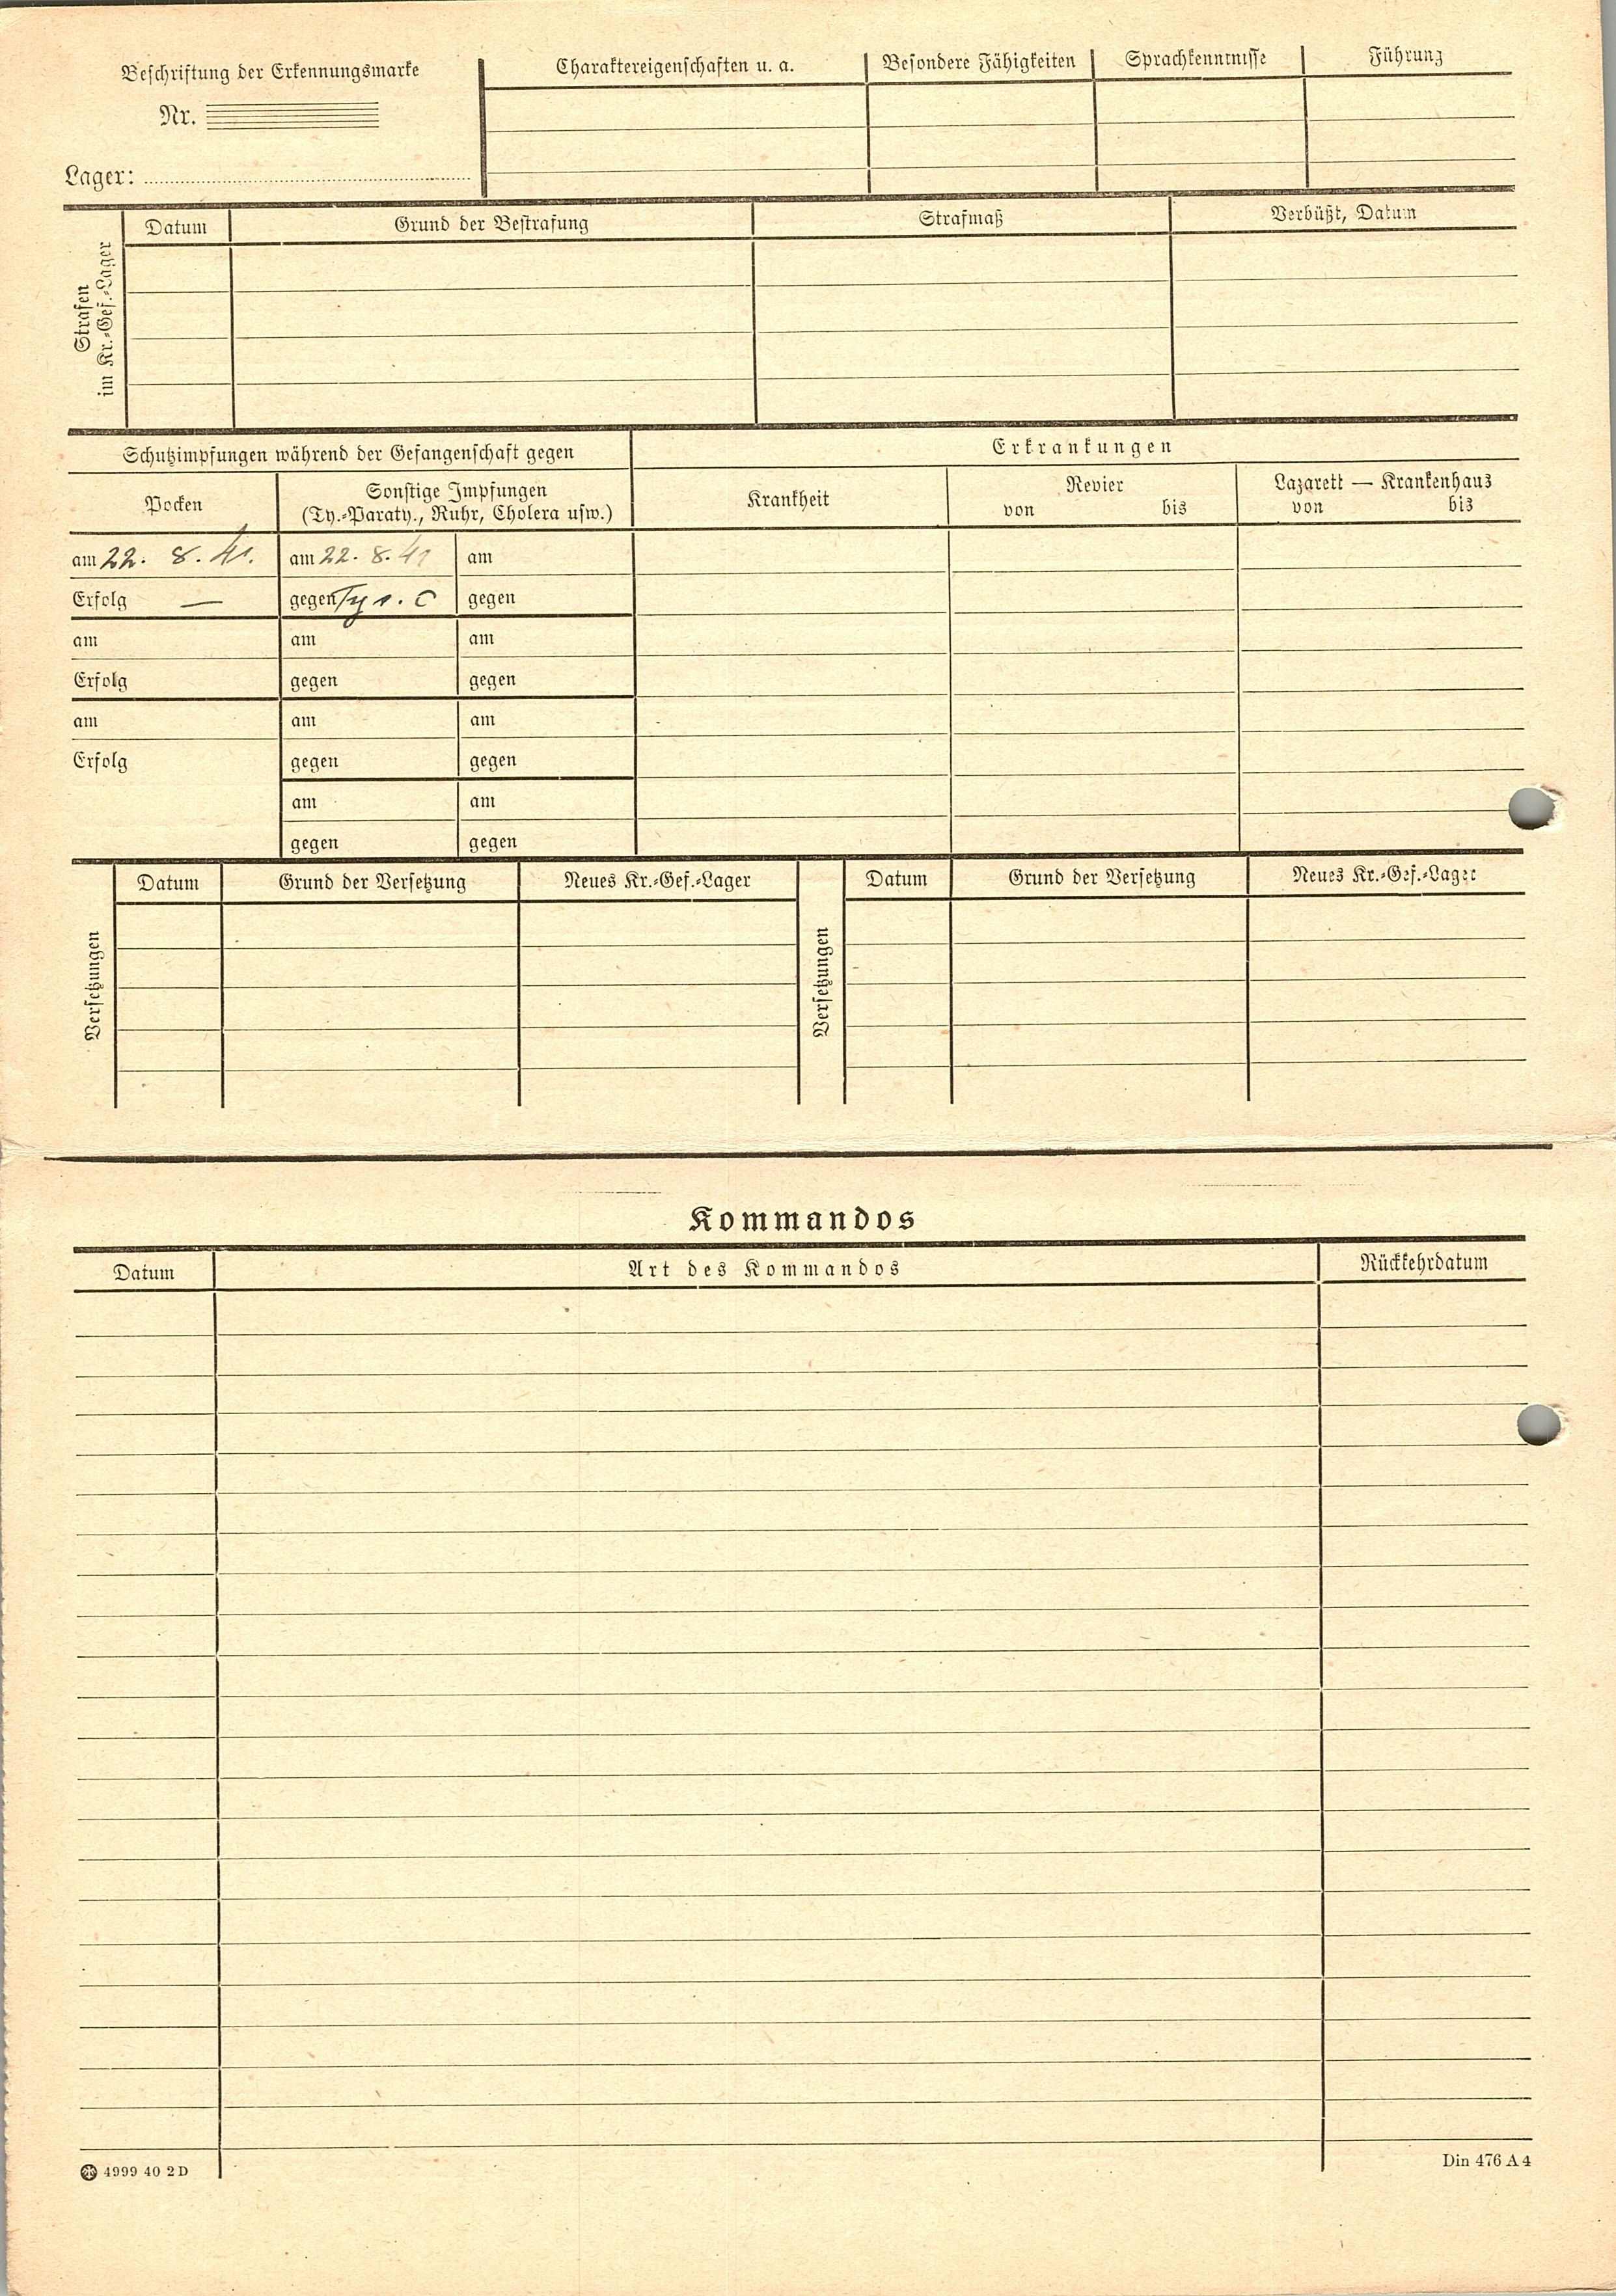 Beschriftung der Erkennungsmarke
Nr.
Lager:
Charaktereigenschaften u. a.
Besondere Fähigkeiten
Sprachkenntnisse
Führung
Strafen
im Kr.-Gef.-Lager
Datum
Grund der Bestrafung
Strafmaß
Verbüßt, Datum
Schutzimpfungen während der Gefangenschaft gegen
Erkrankungen
Pocken
Sonstige Impfungen
(Ty.-Paraty., Ruhr, Cholera usw.)
Krankheit
Revier
von bis
Lazarett — Krankenhaus
von bis
am 22. 8. 41. am 22. 8. 41 am
Erfolg — gegen gegen
am am am
Erfolg gegen gegen
am am am
Erfolg gegen gegen
am am
gegen gegen
Versetzungen
Datum
Grund der Versetzung
Neues Kr.-Gef.-Lager
Versetzungen
Datum
Grund der Versetzung
Neues Kr.-Gef.-Lager
Kommandos
Datum
Art des Kommandos
Rückkehrdatum
4999 40 2 D
Din 476 A 4